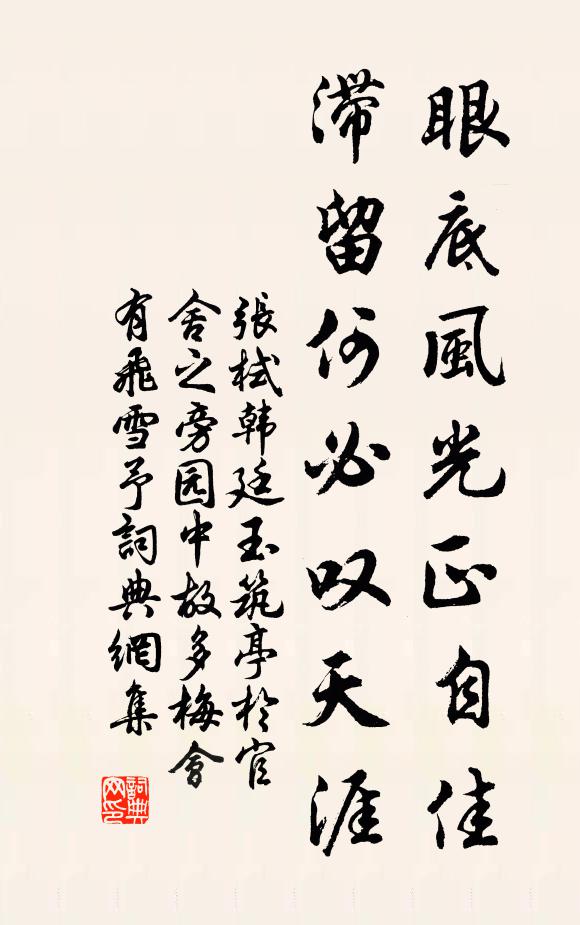 眼底風光正自佳
滯留何必叹天涯
張栻韩廷玉筑亭於官
舍之旁园中故多梅會
有飛雪予詞典網集
詞典
网印